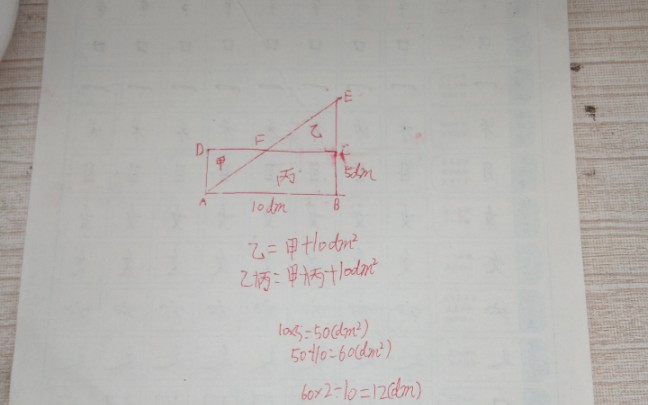 E
乙
D F C
甲
丙
5dm
A 10dm B
乙=甲+10dm²
乙+丙=甲+丙+10dm²
10×5=50(dm²)
50+10=60(dm²)
60×2÷10=12(dm)